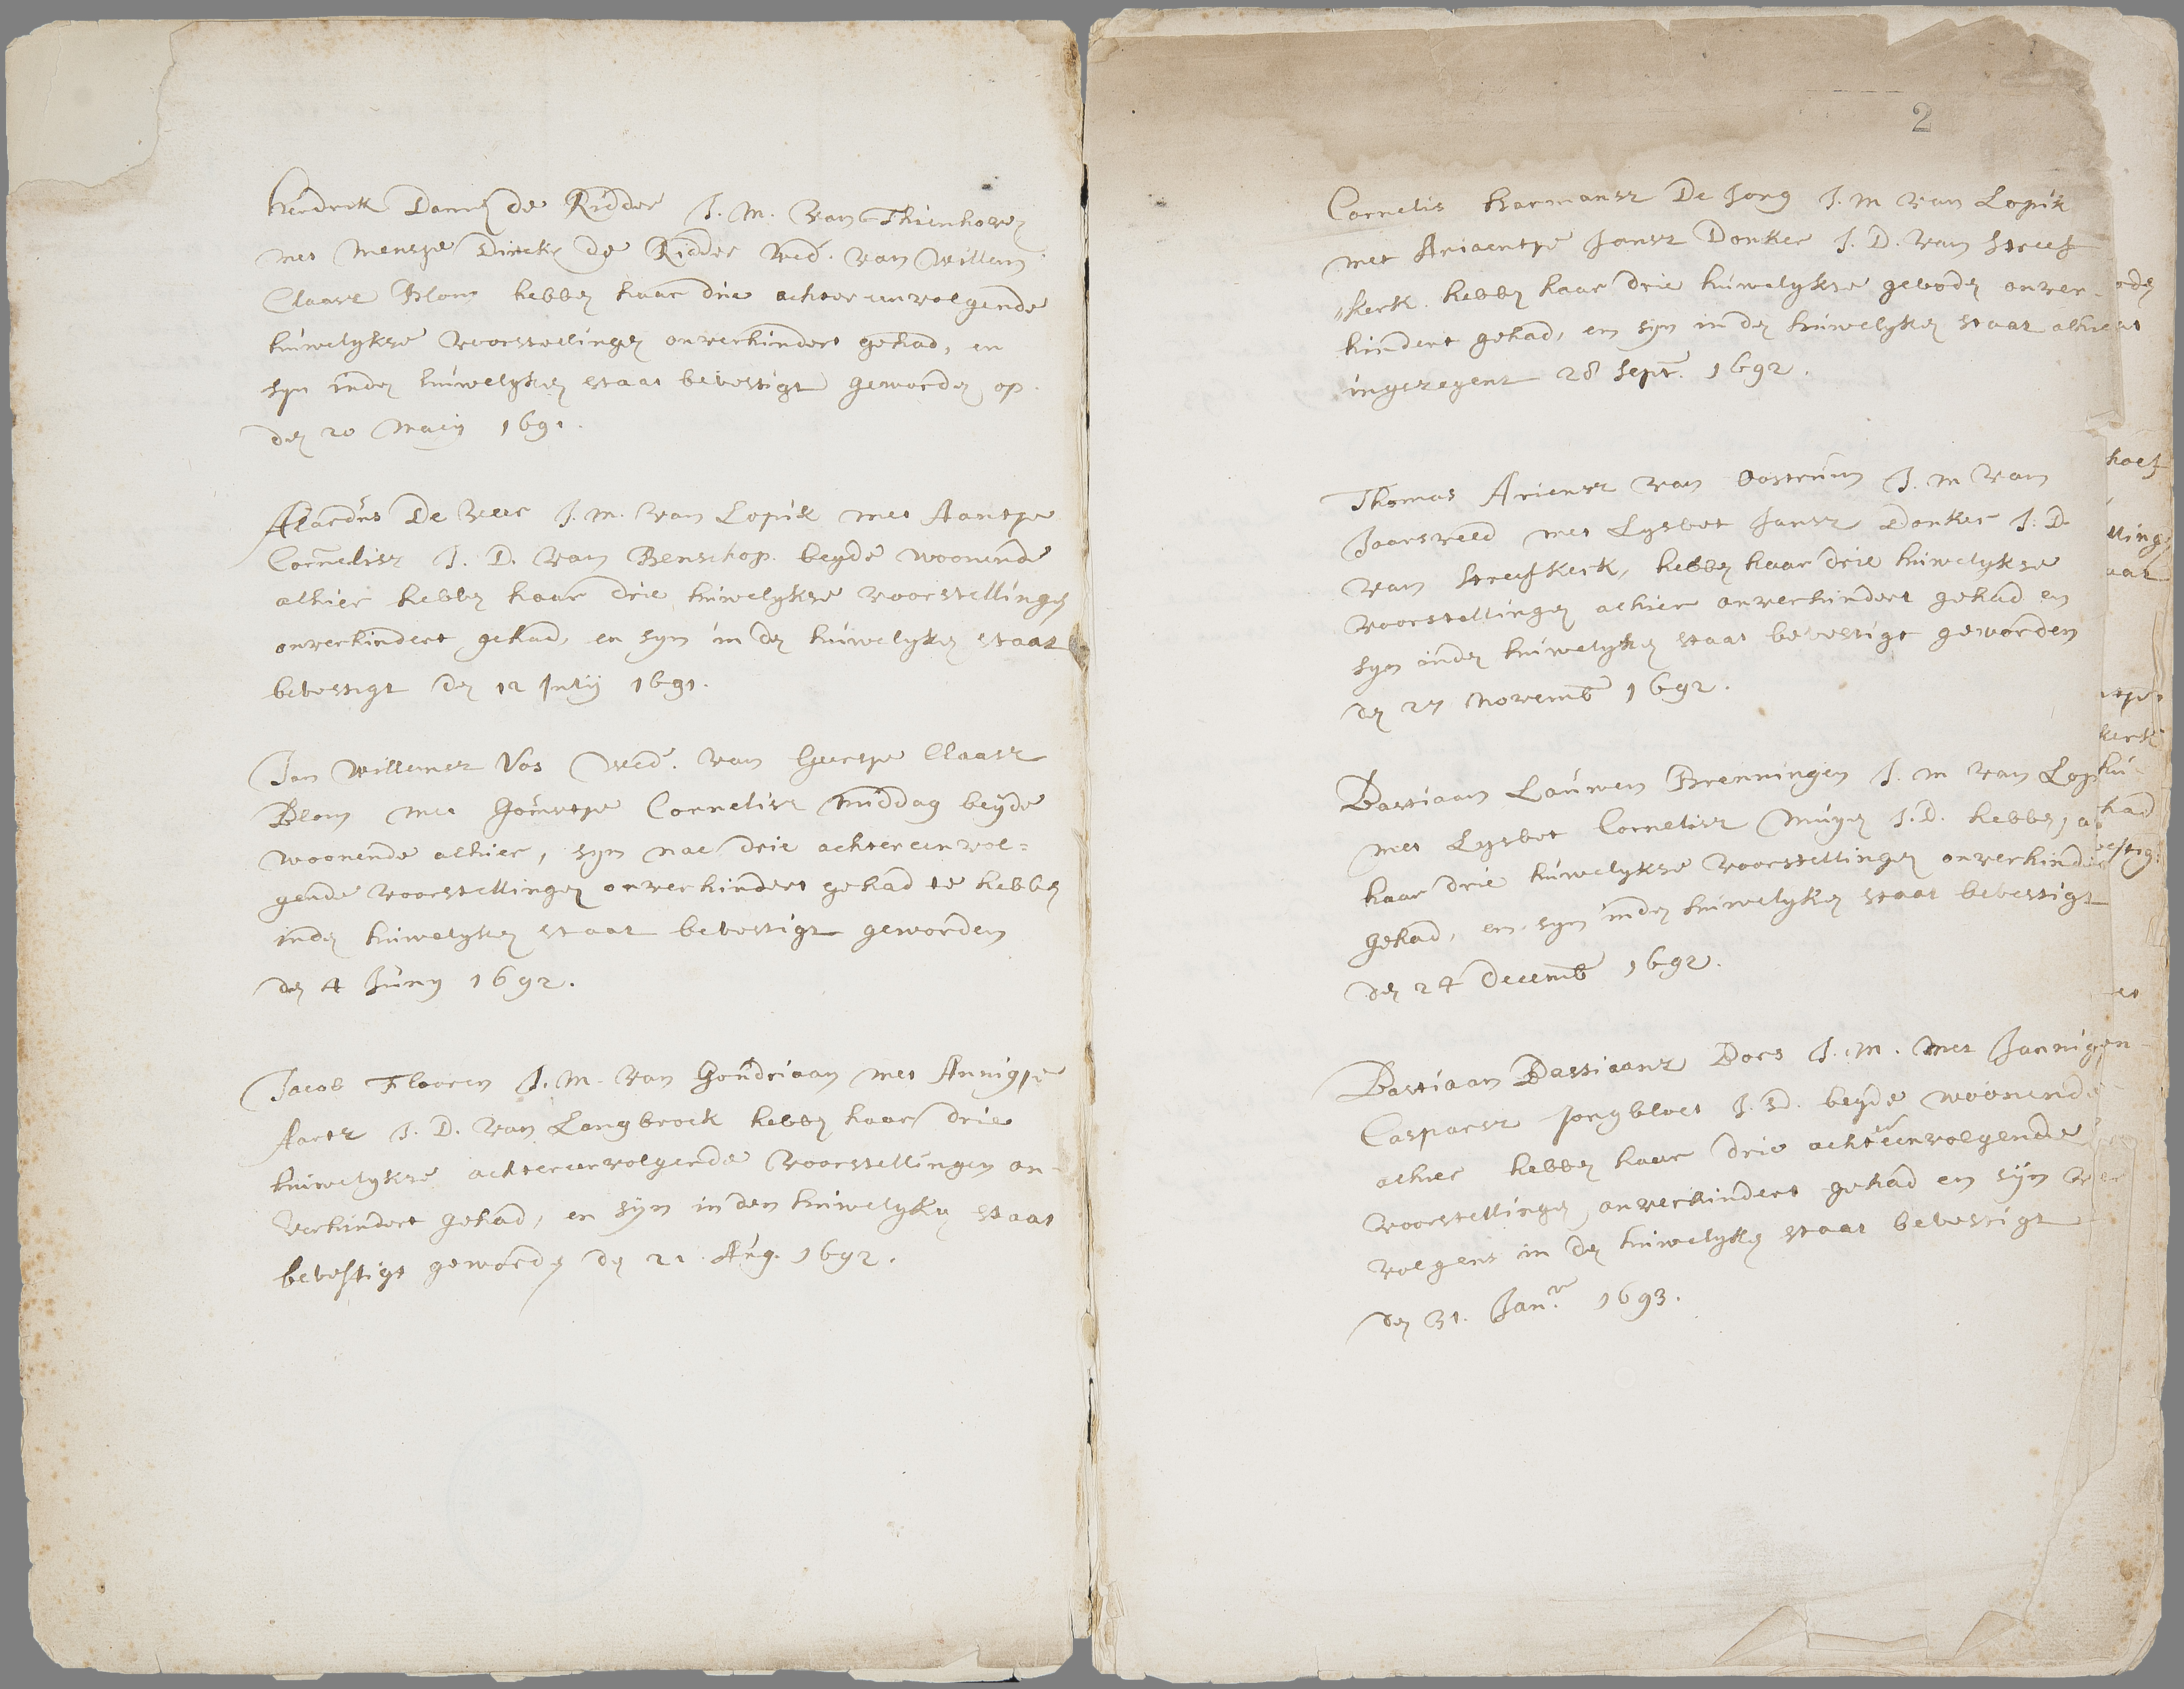 Hendrick Dann. de Ridder J. M. van Thienhoven
met Mensje Dircks de Ridder Wed. van Willem
Claasz Blom hebben haar drie achtereenvolgende
huwelykse voorstellingen onverhindert gehad, en
syn inden huwelyken staat bevestigt geworden op
den 20 Maij 1691.
Alardus De Veer J. M. van Lopik met Aantje
Cornelisz J. D. van Benschop. beyde woonende
alhier hebben haar drie huwelykse voorstellingen
onverhindert gehad, en syn in den huwelyken staat
bevestigt den 12 Julij 1691.
Jan Willemsz Vos Wed. van Geertje Claasz
Blom met Gouwtje Cornelisz Middag beyde
woonende alhier, syn nae drie achtereenvol=
gende voorstellingen onverhindert gehad te hebben
inden huwelyken staat bevestigt geworden
den 4 Juny 1692.
Jacob Flooren J. M. van Goudriaan met Annigje
Aartz J. D. van Langbroek hebben haar drie
huwelykse achtereenvolgende voorstellingen on-
verhindert gehad, en syn in den huwelyken staat
bevestigt geworden den 21. Aug. 1692.
2
Cornelis Harmansz De Jong J. M van Lopik
met Ariaentje Jansz Donker J. D. van Streef
"kerk. hebben haar drie huwelykse geboden onver-
hindert gehad, en syn in den huwelyken staat alhier
ingezegent 28 Sept. 1692.
Thomas Ariensz van Oostrum J. M van
Jaarsveld met Lysbet Jansz Donker J. D.
van Streefkerk, hebben haar drie huwelykse
voorstellingen alhier onverhindert gehad en
syn inden huwelyken staat bevestigt geworden
den 27 Novemb 1692.
Bastiaan Lauwen Brenningen J. M van Lop
met Lysbet Cornelisz Muyen J. D. hebben, a
haar drie huwelykse voorstellingen onverhinder
gehad, en syn inden huwelyken staat bevestigt
den 24 Decemb 1692.
Bastiaan Bastiaansz Dors J. M. met Jannigjen
Caspersz Jongbloet J. D. beyde woonende
alhier hebben haar drie achtereenvolgende
voorstellingen onverhindert gehad en syn ver
volgens in den huwelyken staat bevestigt
den 31. Jan. 1693.